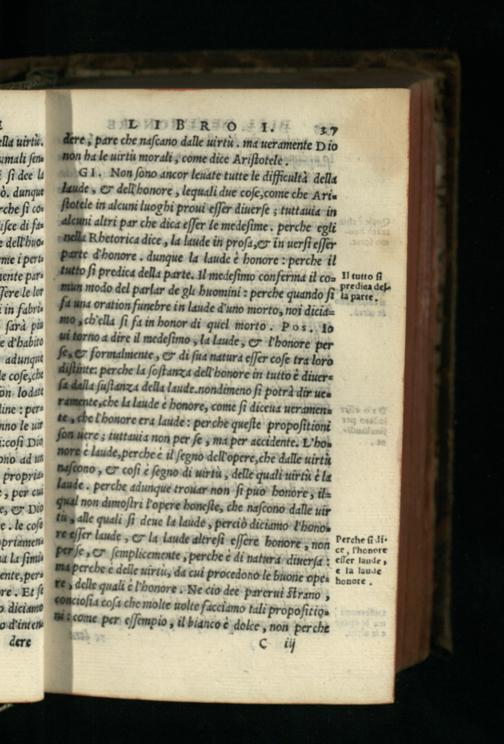 LIBRO I. 37
dere, pare che nascano dalle uirtù. ma ueramente Dio
non ha le uirtù morali, come dice Aristotele.
GI. Non sono ancor leuate tutte le difficultà della
laude, & dell'honore, lequali due cose, come che Ari-
stotele in alcuni luoghi proui esser diuerse; tuttauia in
alcuni altri par che dica esser le medesime. perche egli
nella Rhetorica dice, la laude in prosa, & in uersi esser
parte d'honore. dunque la laude è honore: perche il
tutto si predica della parte. Il medesimo conferma il co-
mun modo del parlar de gli huomini: perche quando si
fa una oration funebre in laude d'uno morto, noi dicia-
mo, ch'ella si fa in honor di quel morto. POS. Io
ui torno a dire il medesimo, la laude, & l'honore per
se, & formalmente, & di sua natura esser cose tra loro
distinte: perche la sostanza dell'honore in tutto è diuer-
sa dalla sustanza della laude. nondimeno si potrà dir ue-
ramente, che la laude è honore, come si diceua ueramen-
te, che l'honore era laude: perche queste propositioni
son uere; tuttauia non per se, ma per accidente. L'ho-
nore è laude, perche è il segno dell'opere, che dalle uirtù
nascono, & così è segno di uirtù, delle quali uirtù è la
laude. perche adunque trouar non si può honore, il-
qual non dimostri l'opere honeste, che nascono dalle uir
tù, alle quali si deue la laude, perciò diciamo l'hono-
re esser laude, & la laude altresì essere honore, non
per se, & semplicemente, perche è di natura diuersa:
ma perche è delle uirtù, da cui procedono le buone ope-
re, delle quali è l'honore. Ne cio dee parerui strano,
conciosia cosa che molte uolte facciamo tali propositio-
ni: come per essempio, il bianco è dolce, non perche
C iij
Il tutto si
predica del-
la parte.
Perche si di-
ce, l'honore
esser laude,
e la laude
honore.
ella uirtù.
si dee la
dunque
rche si co-
dell'huo-
sarà più
d'habito
adunque
le cose, che
così Dio
propria
per cui
& Dio
le cose
Et se
o diciamo
dere